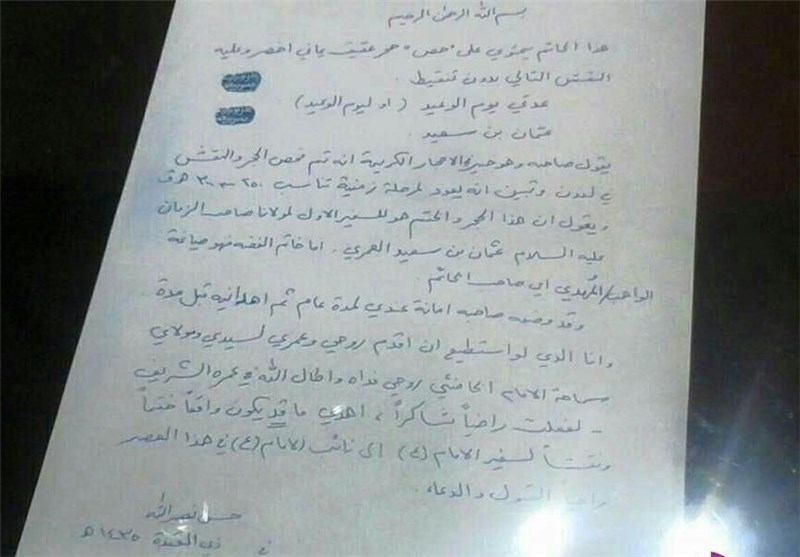 بسم الله الرحمن الرحيم
هذا الخاتم يحتوي على "فص" حجر عقيق يماني اخضر وعليه
النقش التالي بدون تنقيط.
عدتي يوم الوعيد (او ليوم الوعيد)
عثمان بن سعيد.
يقول صاحبه وهو خبير في الاحجار الكريمة انه تم فحص الحجر والنقش
في لندن وتبين انه يعود لمرحلة زمنية تناسب ٢٥٠-٣٠٠ هـ ق
ويقول ان هذا الحجر والختم هو للسفير الاول لمولانا صاحب الزمان
عليه السلام عثمان بن سعيد العمري. اما خاتم الفضه فهو صياغة
الواهب/المُهدي اي صاحب الخاتم.
وقد وضعه صاحبه امانة عندي لمدة عام ثم اهداه اليه قبل مدة.
وانا الذي لو استطيع ان اقدم روحي وعمري لسيدي ومولاي
سماحة الامام الخامنئي روحي فداه واطال الله في عمره الشريف
- لفعلت راضياً شاكراً، اهدي ما قد يكون واقعاً ختماً
ونقشاً لسفير الامام (ع) الى نائب الامام (ع) في هذا العصر
راجياً القبول والدعاء.
حسن نصرالله
في ذي القعدة ١٤٣٥ هـ